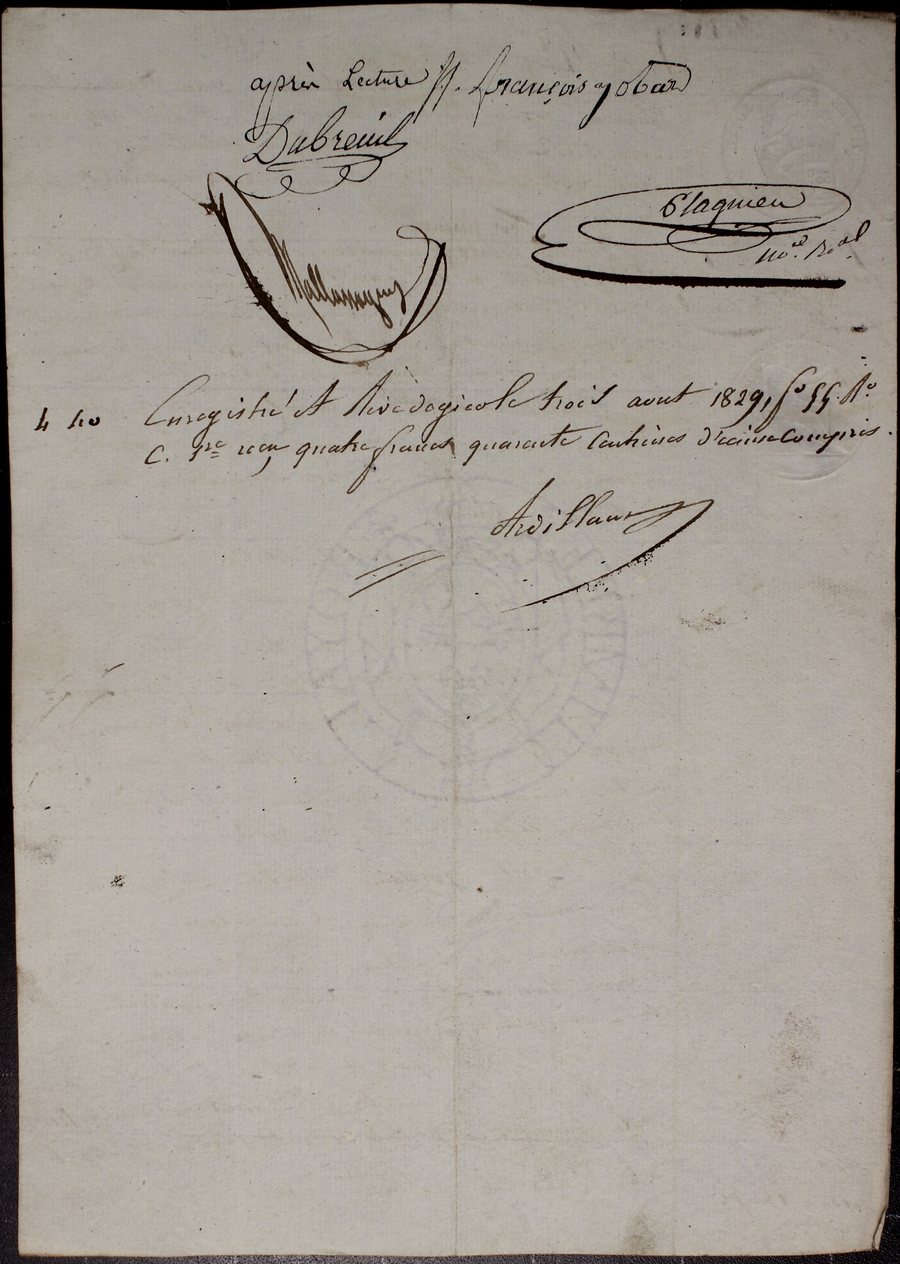 après Lecture ff. françois jobar
Dubreuil
Plaguieu
no.re Roal
Mallamagny
4 40 Enregistré A Rive de gier le trois aout 1829, fo 55. Ro
C. 1re reçu quatre francs quarante Centimes Décime Compris.
Ardillaux